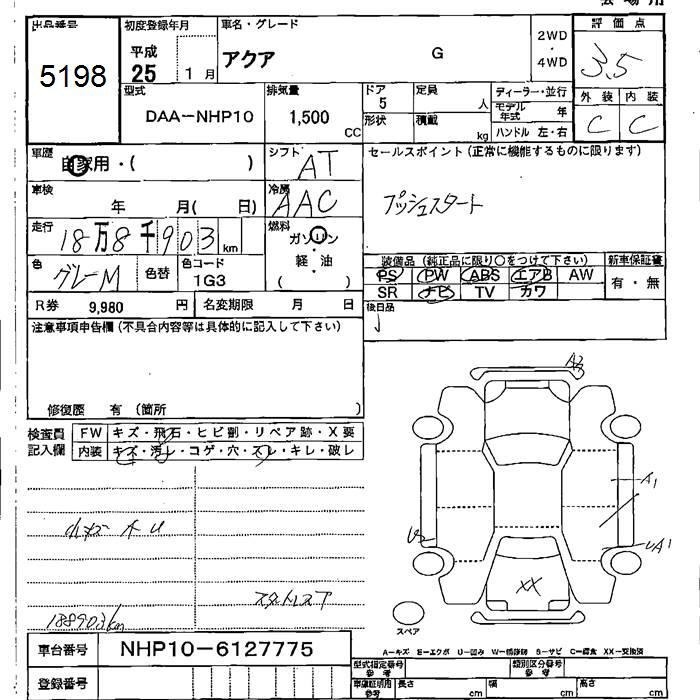 出品番号
5198
初度登録年月
平成
25 1月
車名・グレード
アクア G
2WD
・
4WD
評価点
3.5
型式
DAA-NHP10
排気量
1,500
CC
ドア
5
定員
人
形状
積載
kg
ディーラー・並行
モデル年式 年
ハンドル 左・右
外装 内装
C C
車歴
自家用・( )
シフト
AT
セールスポイント(正常に機能するものに限ります)
プッシュスタート
車検
年 月( 日)
冷房
AAC
走行
18万8千903 km
燃料
ガソリン
軽・油
( )
色
グレーM
色替
色コード
1G3
装備品(純正品に限り○をつけて下さい)
新車保証書
PS PW ABS エアB AW
SR ナビ TV カワ
有・無
R券 9,980 円
名変期限 月 日
後日品
注意事項申告欄(不具合内容等は具体的に記入して下さい)
修復歴 有 (箇所 )
検査員
記入欄
FW キズ・飛石・ヒビ割・リペア跡・X要
内装 キズ・汚レ・コゲ・穴・スレ・キレ・破レ
A3
A1
UA1
U2
XX
小キズ 大U
スタットレスア
188903km
スペア
車台番号
NHP10-6127775
登録番号
A-キズ E-エクボ U-凹み W-補修跡 S-サビ C-腐食 XX-交換済
型式指定番号
参考
類別区分番号
参考
車庫証明用
参考
長さ cm
幅 cm
高さ cm